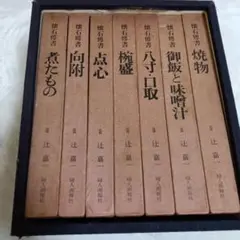 懐石傳書
煮たもの
辻嘉一
婦人画報社
懐石傳書
向附
辻嘉一
婦人画報社
懐石傳書
点心
辻嘉一
婦人画報社
懐石傳書
椀盛
辻嘉一
婦人画報社
懐石傳書
八寸・口取
辻嘉一
婦人画報社
懐石傳書
御飯と味噌汁
辻嘉一
婦人画報社
懐石傳書
焼物
辻嘉一
婦人画報社